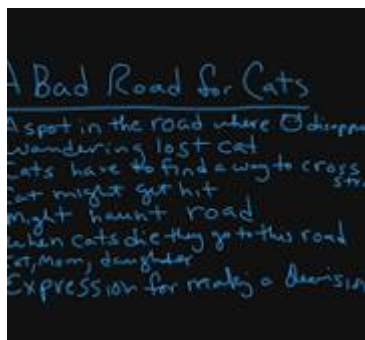 A Bad Road for Cats
A spot in the road where disappe
wandering lost cat
Cats have to find a way to cross
stre
Cat might get hit
might haunt road
when cats die they go to this road
Cat, Mom, daughter
Expression for making a decision